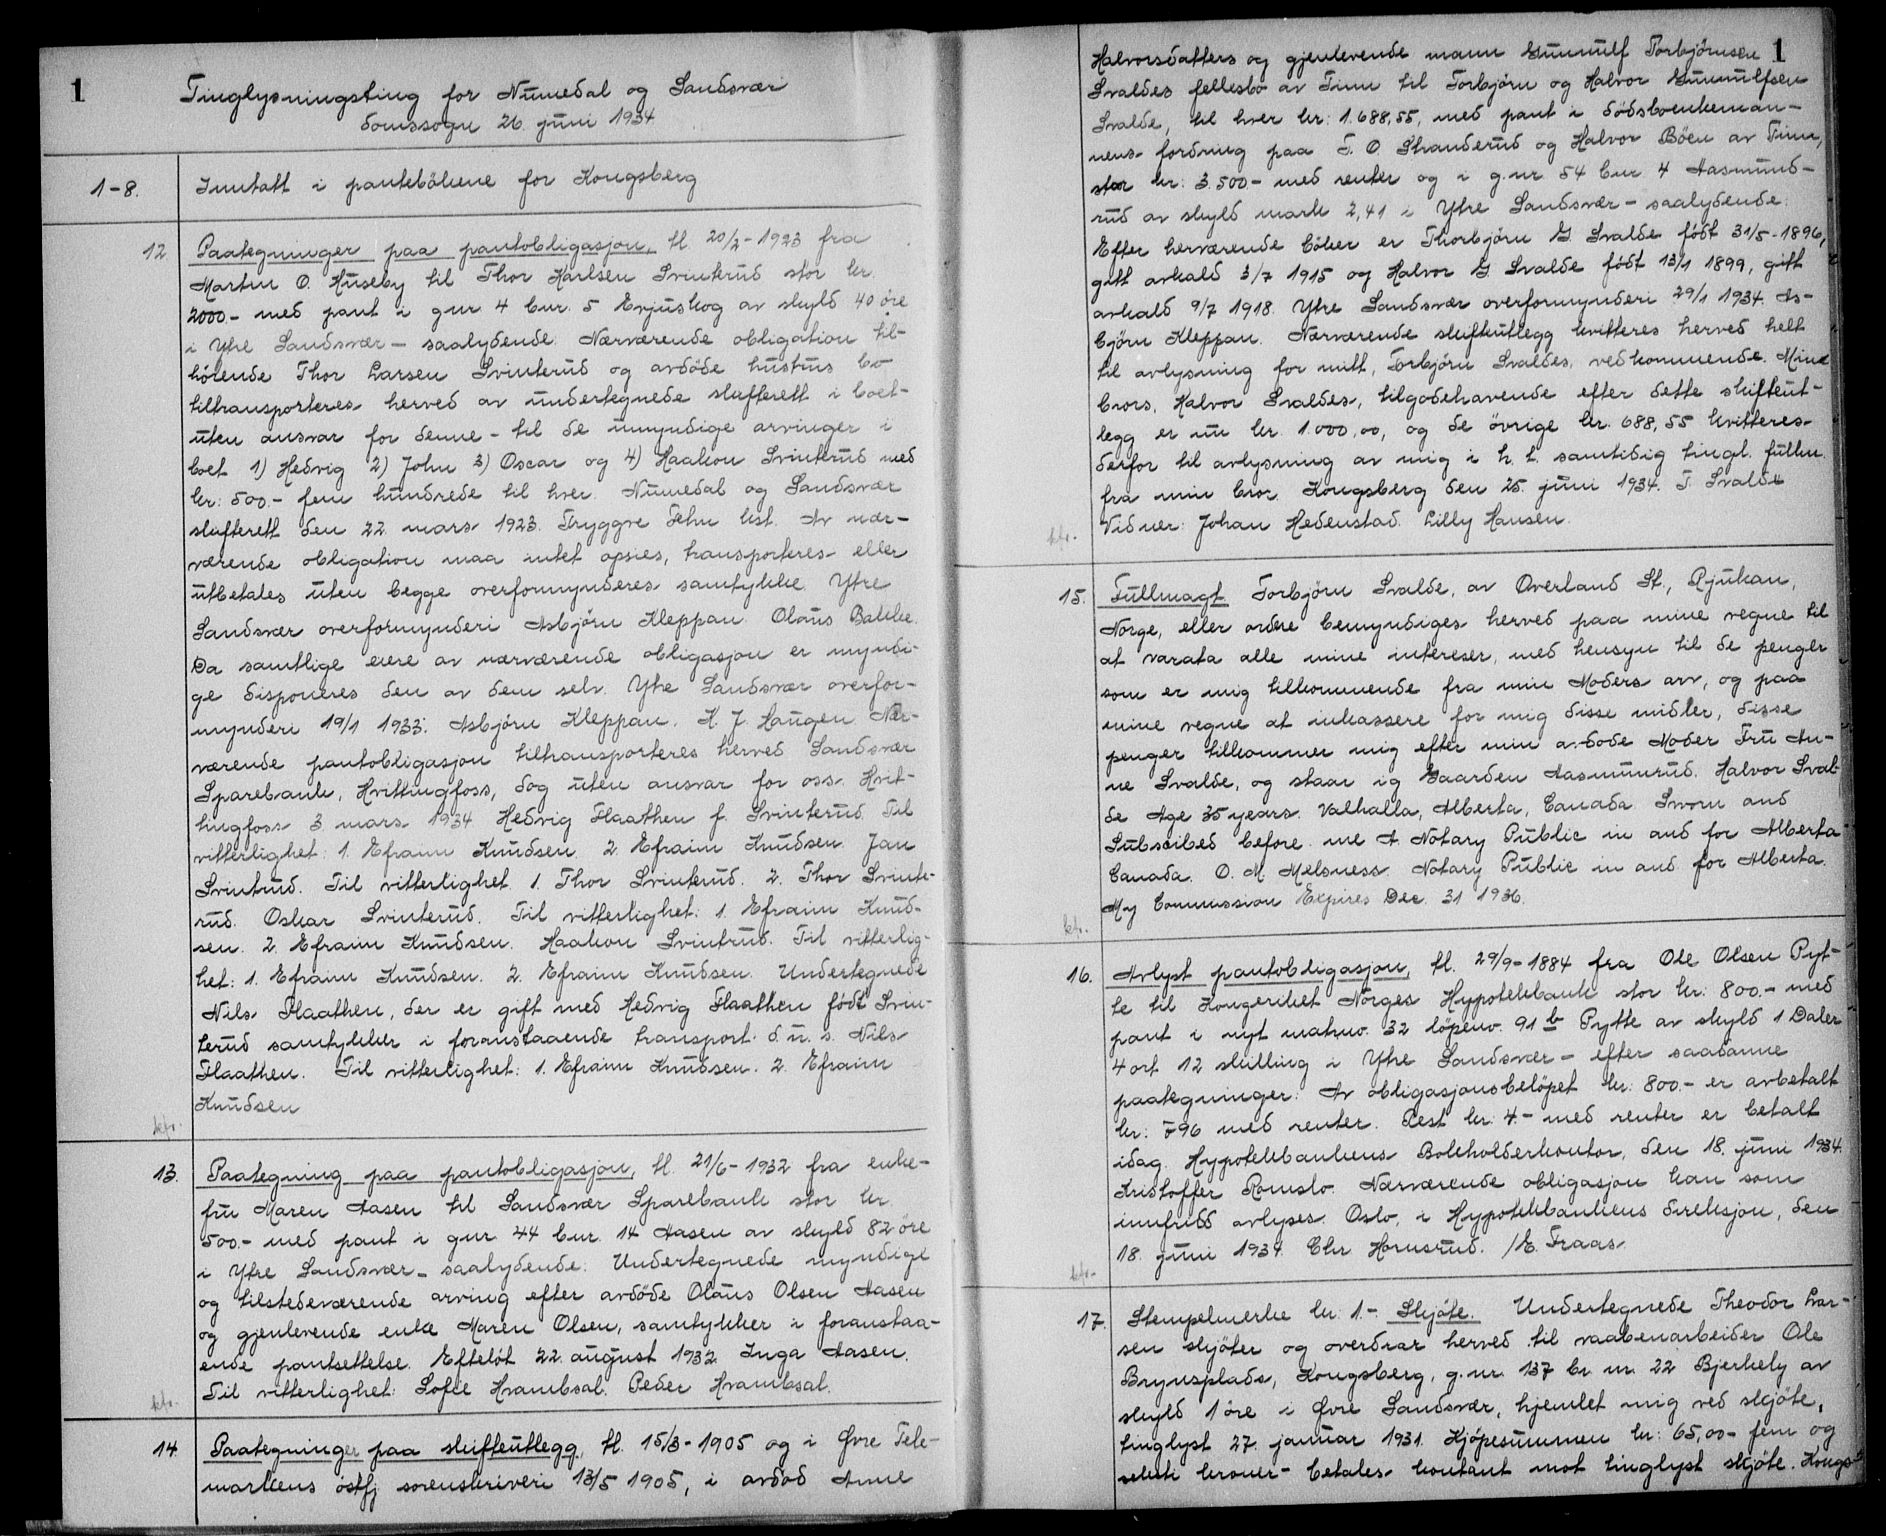 1
Tinglysningsting for Numedal og Sandsvær
domssogn 26. juni 1934
1-8. Inntatt i pantebökene for Kongsberg
12. Paategninger paa pantobligasjon, tl. 20/2-1923 fra
Martin O. Huseby til Thor Karlsen Svinterud stor kr.
2000.- med pant i gnr 4 bnr. 5 Evjuskog av skyld 40 öre
i Ytre Sandsvær - saalydende: Nærværende obligation til-
hörende Thor Larsen Svinterud og avdöde hustrus bo
tiltransporteres herved av undertegnede skifterett i boet -
uten ansvar for denne - til de umyndige arvinger i
boet 1) Hedvig 2) John 3) Oscar og 4) Haakon Svinterud med
kr. 500.- fem hundrede til hver. Numedal og Sandsvær
skifterett den 22 mars 1923. Tryggve Fehn kst. Av nær-
værende obligation maa intet opsies, transporteres eller
utbetales uten begge overformynderes samtykke. Ytre
Sandsvær overformynderi Asbjörn Kleppan. Olaus Bakke.
Da samtlige eiere av nærværende obligasjon er myndi-
ge disponeres den av dem selv. Ytre Sandsvær overfor-
mynderi 19/1 1933. Asbjörn Kleppan. K. J. Haugen. Nær-
værende pantobligasjon tiltransporteres herved Sandsvær
Sparebank, Hvittingfoss, dog uten ansvar for oss. Hvit-
tingfoss 3. mars 1934 Hedvig Flaathen f. Svinterud. Til
vitterlighet: 1. Efraim Knudsen 2. Efraim Knudsen Jan
Svintrud. Til vitterlighet 1. Thor Svinterud. 2. Thor Svinte-
rud. Oskar Svinterud. Til vitterlighet: 1. Efraim Knud-
sen. 2. Efraim Knudsen. Haakon Svintrud. Til vitterlig-
het: 1. Efraim Knudsen. 2. Efraim Knudsen. Undertegnede
Nils Flaathen, der er gift med Hedvig Flaathen född Svin-
terud samtykker i foranstaaende transport. d.u.s. Nils
Flaathen. Til vitterlighet: 1. Efraim Knudsen. 2. Efraim
Knudsen
ktr.
13. Paategning paa pantobligasjon, tl. 21/6-1932 fra enke-
fru Maren Aasen til Sandsvær Sparebank stor kr.
500.- med pant i gnr 44 bnr. 14 Aasen av skyld 82 öre
i Ytre Sandsvær - saalydende: Undertegnede myndige
og tilstedeværende arving efter avdöde Olaus Olsen Aasen
og gjenlevende enke Maren Olsen, samtykker i foranstaa-
ende pantsettelse. Eftelöt 22 august 1932 Inga Aasen.
Til vitterlighet: Sofie Hvambsal. Peder Hvambsal.
ktr.
14. Paategninger paa skifteutlegg, tl. 15/3-1905 og i Övre Tele-
markens östfj. sorenskriveri 13/5 1905, i avdöd Anne
1
Halvorsdatters og gjenlevende mann Gunnulf Torbjörnsen
Svaldes fellesbo av Tinn til Torbjörn og Halvor Gunnulfsen
Svalde, til hver kr: 1.688,55, med pant i dödsboenkeman-
nens fordring paa T. O Stranderud og Halvor Böen av Tinn,
stor kr: 3.500- med renter og i g.nr. 54 bnr 4 Aasmund-
rud av skyld mark 2,41 i Ytre Sandsvær - saalydende:
Efter herværende böker er Thorbjörn G. Svalde född 31/5-1896,
gitt avkald 3/7 1915 og Halvor G Svalde född 13/1 1899, gitt
avkald 9/7 1918. Ytre Sandsvær overformynderi 29/1 1934. As-
björn Kleppan. Nærværende skifteutlegg kvitteres herved helt
til avlysning for mitt, Torbjörn Svaldes, vedkommende. Mine
brors, Halvor Svaldes, tilgodehavende efter dette skifteut-
legg er nu kr. 1.000,00, og de övrige kr. 688,55 kvitteres
derfor til avlysning av mig i h. t. samtidig tingl. fullm.
fra min bror. Kongsberg den 25. juni 1934. T. Svalde
Vidner: Johan Hedenstad. Lilly Hansen.
ktr.
15. Fullmagt Torbjörn Svalde, av Overland St., Rjukan,
Norge, eller ordre bemyndiges herved paa mine vegne til
at varata alle mine intereser, med hensyn til de penger
som er mig tilkommende fra min Moders arv, og paa
mine vegne at inkassere for mig disse midler, disse
penger tilkommer mig efter min avdode Moder Fru An-
ne Svalde, og staar ig Gaarden Aasmunrud. Halvor Sval-
de Age 35 years. Valhalla, Alberta, Canada. Sworn and
Subscibed before me A Notary Public in and for Alberta
Canada. O. M. Melsness. Notary Public in and for Alberta.
My Commission Expires Dec. 31 1936.
ktr.
16. Avlyst pantobligasjon, tl. 29/9-1884 fra Ole Olsen Pyt-
te til Kongeriket Norges Hypotekbank stor kr: 800.- med
pant i nyt matrno. 32 löpeno. 91 b Pytte av skyld 1 Daler
4 ort 12 skilling i Ytre Sandsvær - efter saadanne
paategninger: Av obligasjonsbelöpet kr: 800.- er avbetalt
kr: 796 med renter. Rest kr: 4.- med renter er betalt
idag. Hypotekbankens Bokholderkontor, den 18. juni 1934.
Kristoffer Romslo. Nærværende obligasjon kan som
innfridd avlyses. Oslo, i Hypotekbankens direksjon, den
18. juni 1934. Chr Hornsrud. /E. Fraas
ktr.
17. Stempelmerke kr. 1.- Skjöte. Undertegnede Theodor Lar-
sen skjöter og overdrar herved til vaabenarbeider Ole
Brynsplads, Kongsberg, g.nr. 137 br. nr. 22 Bjerkely av
skyld 1 öre i Övre Sandsvær, hjemlet mig ved skjöte,
tinglyst 27. januar 1931. Kjöpesummen kr: 65,00 - fem og
seksti kroner - betales kontant mot tinglyst skjöte. Kongs-